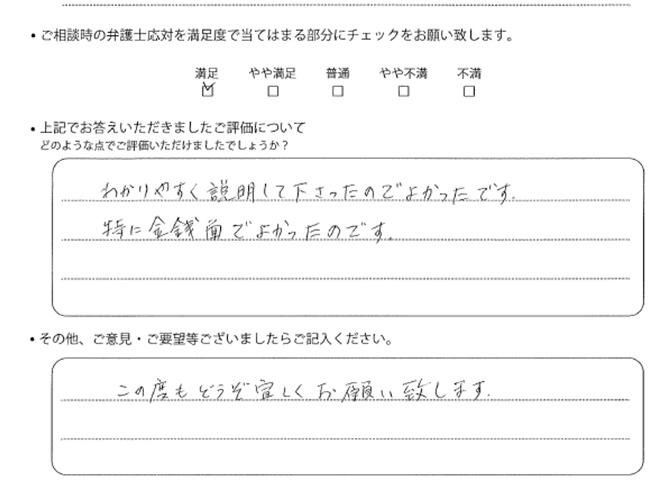 ・ご相談時の弁護士応対を満足度で当てはまる部分にチェックをお願い致します。
満足 やや満足 普通 やや不満 不満
☑ □ □ □ □
・上記でお答えいただきましたご評価について
どのような点でご評価いただけましたでしょうか？
わかりやすく説明して下さったのでよかったです.
特に金銭面でよかったのです.
・その他、ご意見・ご要望等ございましたらご記入ください。
この度もどうぞ宜しくお願い致します.